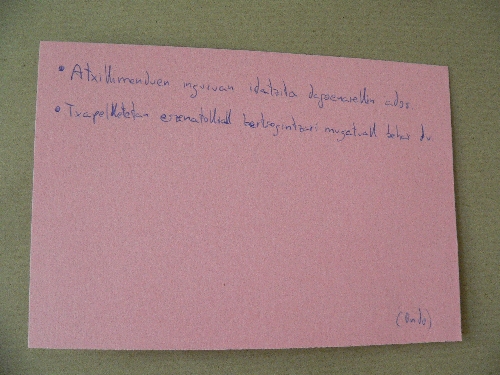 • Atxikimenduen inguruan idatzita dagoenarekin ados.
• Txapelketetan erronatokiak bertsogintzari mugatuak behar du
(Ondo)